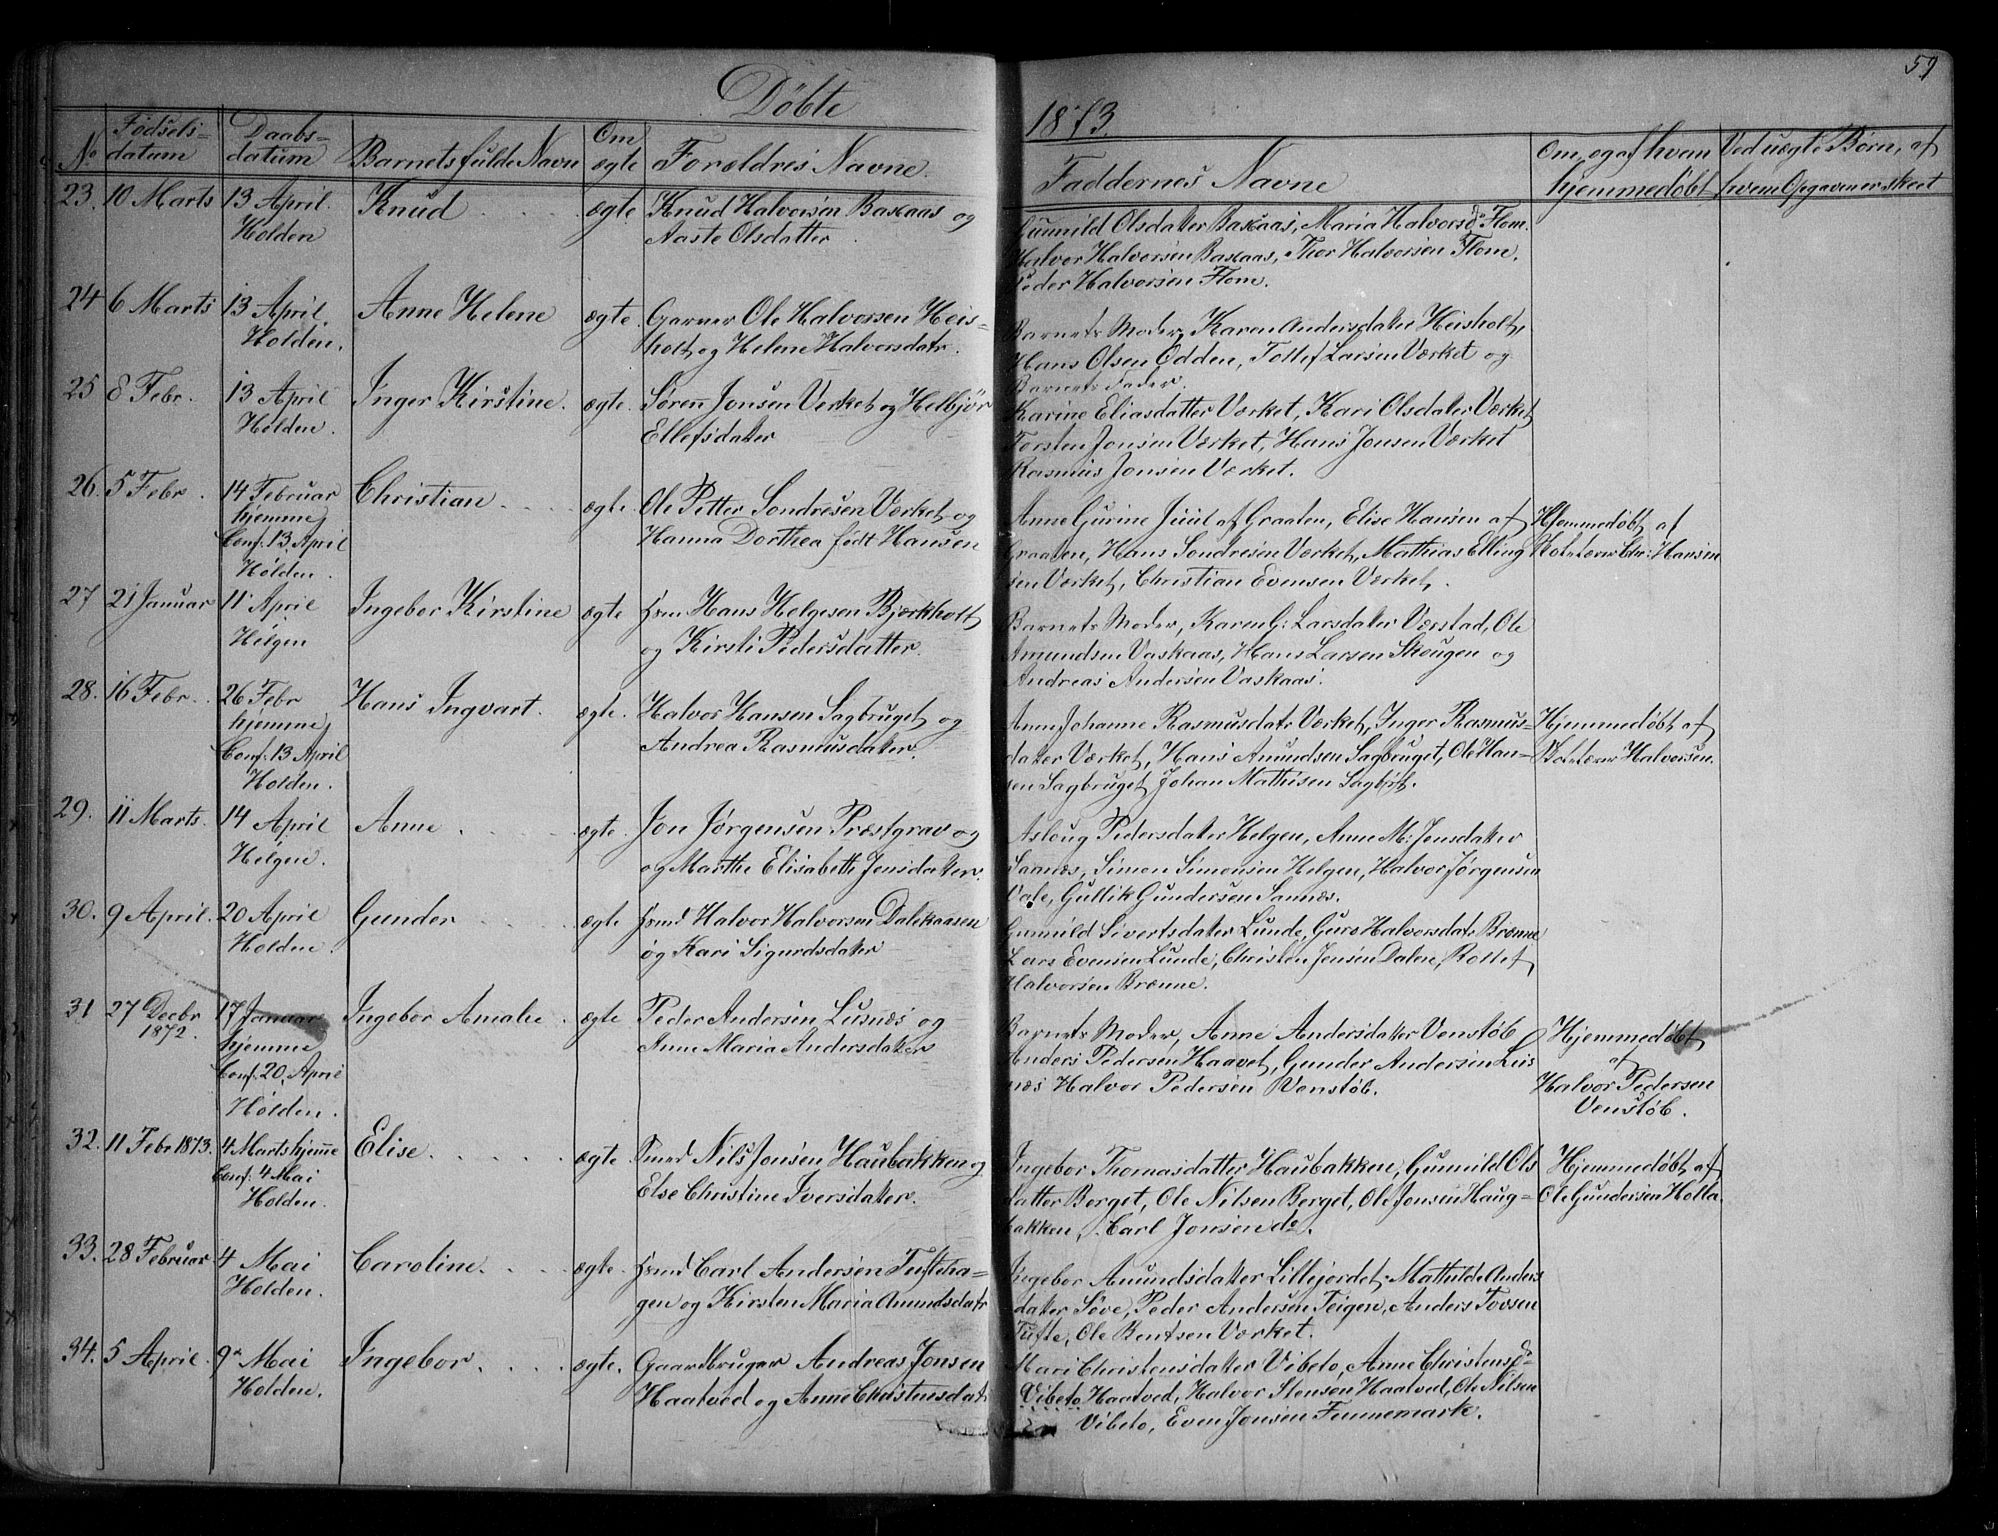 59
Døbte
1873.
No
Fødsels-
datum
Daabs-
datum
Barnets fulde Navn
Om
ægte
Forældres Navne.
Faddernes Navne
Om og af hvem
hjemmedøbt
Ved uægte Børn, af
hvem Opgaven er skeet
23. 10 Marts 13 April Knud ægte Knud Halvorsen Baskaas og
Holden Aaste Olsdatter.
Gunnild Olsdatter Baskaas, Maria Halvorsdr Flom.
Halvor Halvorsen Baskaas, Thor Halvorsen Flom.
Peder Halvorsen Flom.
24 6 Marts 13 April Anne Helene ægte. Garver Ole Halvorsen Heis-
Holden. holt og Helene Halvorsdatr.
Barnets Moder, Karen Andersdater Heisholt,
Hans Olsen Odden, Tollef Larsen Værket og
Barnets Fader.
25 8 Febr. 13 April Inger Kirstine. ægte. Søren Jonsen Verket og Helbjør
Holden. Ellefsdater
Karine Eliasdatter Værket, Kari Olsdater Værket
Torsten Jonsen Værket, Hans Jonsen Værket
Rasmus Jonsen Værket.
26. 5 Febr. 14 Februar Christian ægte. Ole Petter Sondresen Værket og
hjemme, Hanna Dorthea født Hansen
Conf. 13 April
Holden.
Anne Gurine Juul af Graaten, Elise Hansen af
Graaten, Hans Sondresen Værket, Mathias Elling
sen Værket, Christian Evensen Værket.
Hjemmedøbt af
Kirketærer Chr: Hansen
27 21 Januar 11 April Ingebor Kirstine ægte Hmd Hans Helgesen Bjørkholt
Helgen og Kirsti Pedersdatter.
Barnets Moder, Karen G: Larsdater Værstad, Ole
Amundsen Vaskaas, Hans Larsen Skougen og
Andreas Andersen Vaskaas.
28. 16 Febr. 26 Febr Hans Ingvart. ægte. Halvor Hansen Sagbruget og
hjemme, Andrea Rasmusdater.
Conf. 13 April
Holden.
Anne Johanne Rasmusdatr Værket, Inger Rasmus-
dater Værket, Hans Amundsen Sagbruget, Ole Han-
sen Sagbruget Johan Mathisen Sagbrt.
Hjemmedøbt af
Halvorsen.
29. 11 Marts. 14 April Anne ægte. Jon Jørgensen Præstgrav og
Helgen. og Marthe Elisabeth Jensdater.
Asloug Pedersdater Helgen, Anne M: Jensdater
Sannæs, Simon Simonsen Helgen, Halvor Jørgensen
Vale, Gullik Gundersen Sannæs.
30. 9 April. 20 April Gunder ægte Hmd Halvor Halvorsen Dalekaasen
Holden. og Kari Sigurdsdater
Gunnild Sivertsdater Lunde, Guro Halvorsdatr Brænne
Lars Evensen Lunde, Christen Jensen Dalene, Rollef
Halvorsen Brænne.
31 27 Decbr 17 Januar Ingebor Amalie. ægte Peder Andersen Lusnæs og
1872. hjemme Anne Maria Andersdater
Conf. 20 April
Holden.
Barnets Moder, Anne Andersdater Venstøb
Anders Pedersen Haavet, Gunder Andersen Lus
næs Halvor Pedersen Venstøb.
Hjemmedøbt
af
Halvor Pedersen
Venstøb.
32. 11 Febr 1873. 4 Marts hjemme Elise. ægte Smed Nils Jonsen Haubakken og
Conf: 4 Mai Else Christine Iversdater.
Holden.
Ingebor Thomasdatter Haubakken, Gunnild Ols
datter Berget, Ole Nilsen Berget, Ole Jonsen Haug-
bakken, Carl Jonsen do.
Hjemmedøbt af
Ole Gundersen Holla
33. 28 Februar 4 Mai Caroline. ægte. Hmd Carl Andersen Tufteha-
Holden. gen og Kirsten Maria Amundsdatr
Ingebor Amundsdatter Lillejordet, Mathilde Anders
dater Søve, Peder Andersen Teigen, Anders Tovsen
Tufte, Ole Bentsen Værket.
34. 5 April. 9 Mai Ingebor. ægte. Gaardbruger Andreas Jonsen
Holden. Haatved og Anne Christensdatr
Mari Christensdatter Vibeto, Anne Christensdr
Vibeto Haatved, Halvor Stensen Haatved, Ole Nilsen
Vibeto, Even Jonsen Finnemark.